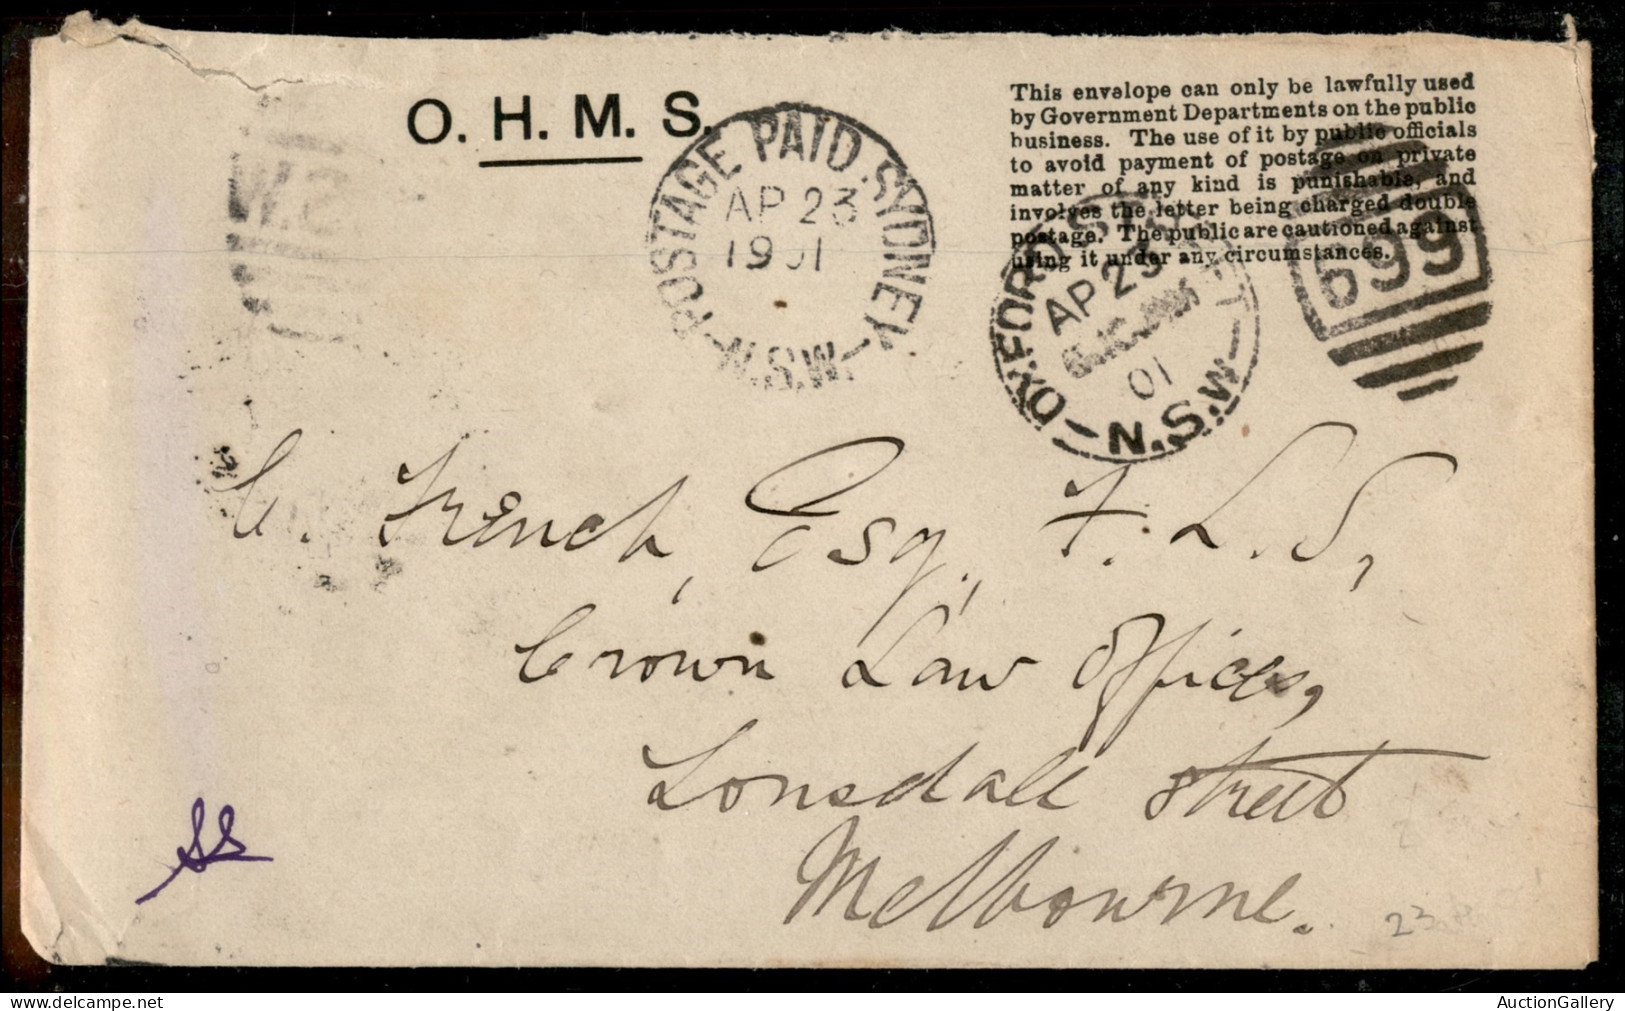 O. H. M. S.
This envelope can only be lawfully used
by Government Departments on the public
business. The use of it by public officials
to avoid payment of postage on private
matter of any kind is punishable, and
involves the letter being charged double
postage. The public are cautioned against
using it under any circumstances.
POSTAGE PAID SYDNEY
AP 23
1901
N.S.W.
OXFORD ST
AP 23
01
N.S.W
699
C. French, Esq., F.L.S,
Crown Law Offices,
Lonsdale Street
Melbourne.
23
AuctionGallery